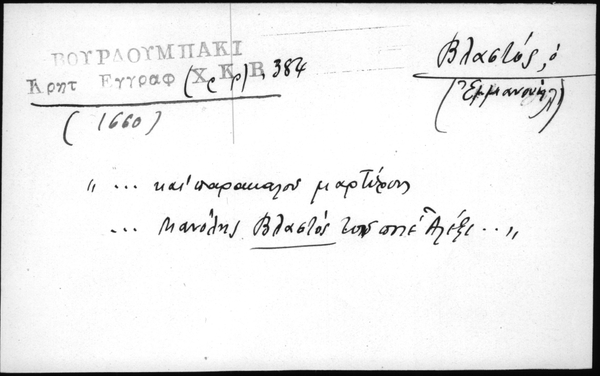 ΒΟΥΡΔΟΥΜΠΑΚΙ
Κρητ Εγγραφ (Χ.Κ.Β), 384
(ρρ)
(1660)
Βλαστός, ὁ
(Ἐμμανουήλ)
„ ... καί παρακαλοῦ μαρτύροι
... Μανόλης Βλαστός τοῦ ποτέ Ἀλέξι ... „